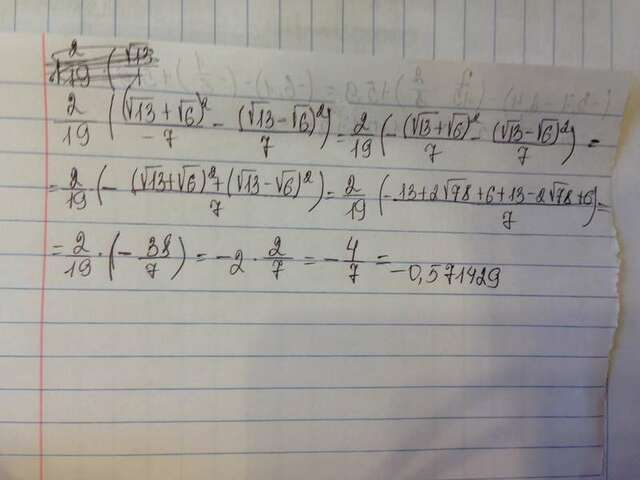 2/19 (√13
2/19 ((√13 + √6)²/-7 - (√13 - √6)²/7) = 2/19 (-(√13 + √6)²/7 - (√13 - √6)²/7) =
= 2/19 · (- (√13 + √6)² + (√13 - √6)²/7) = 2/19 (- 13 + 2√78 + 6 + 13 - 2√78 + 6/7) =
= 2/19 · (- 38/7) = -2 · 2/7 = - 4/7 = -0,571429